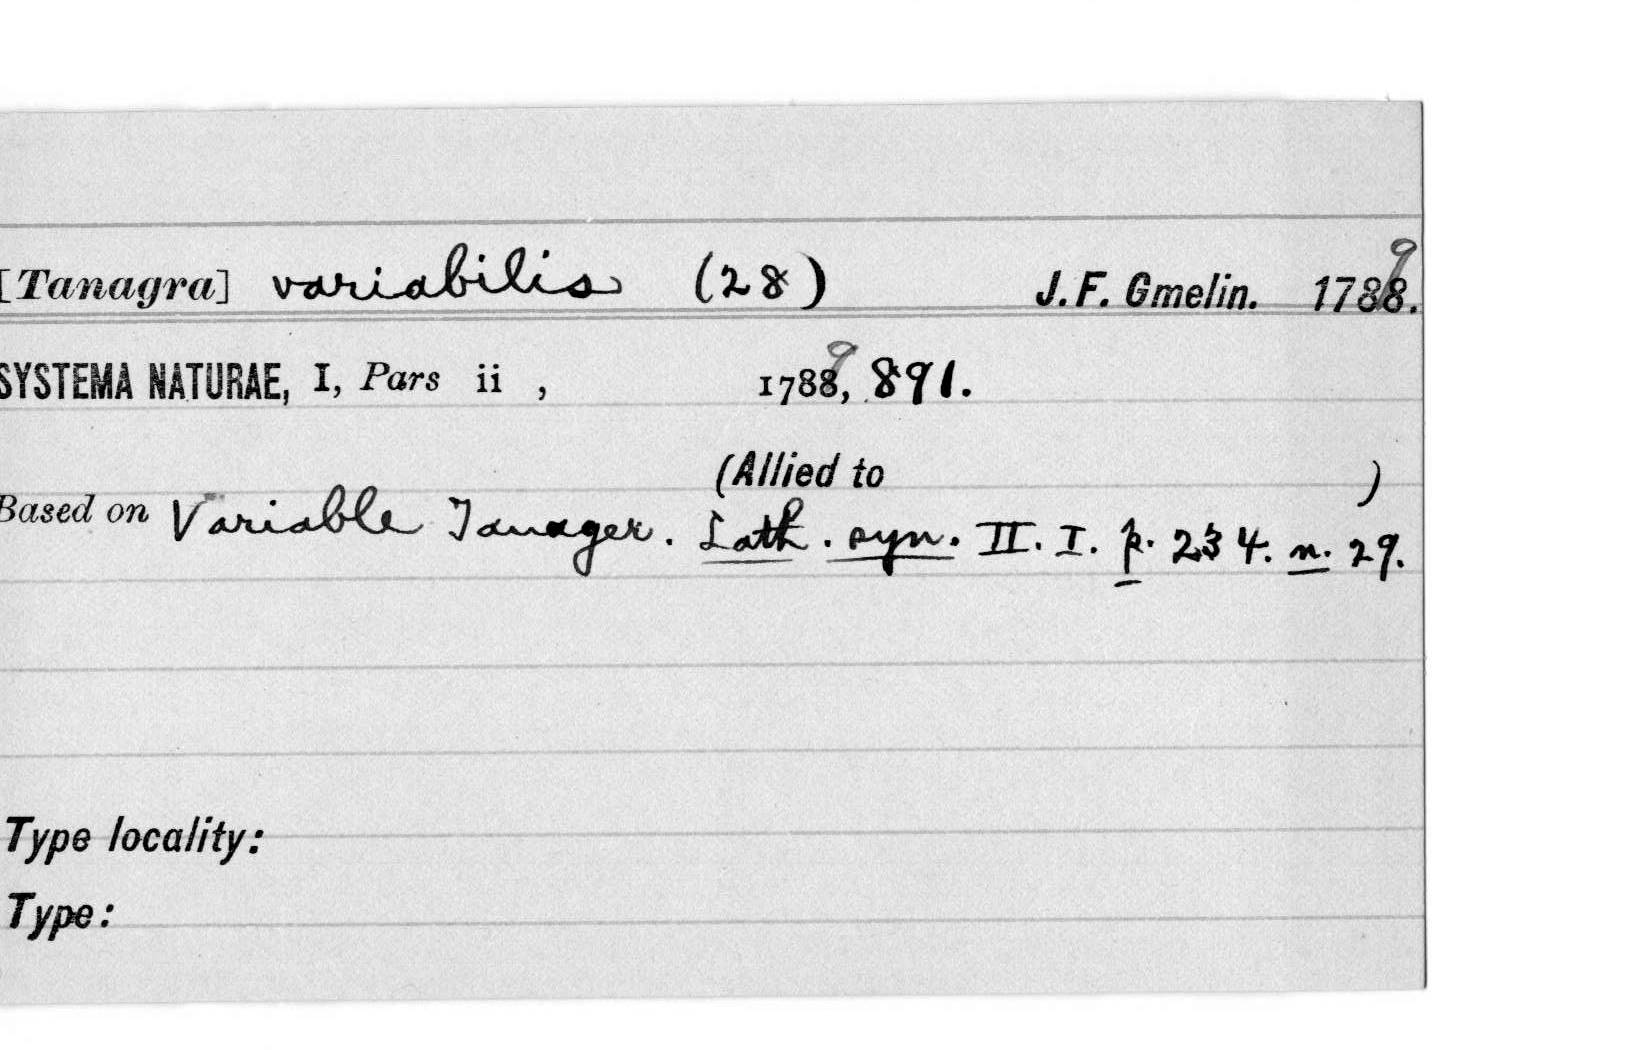 [Tanagra] variabilis (28) J. F. Gmelin. 1788. 9
SYSTEMA NATURAE, I, Pars ii , 1788, 9 891.
(Allied to )
Based on Variable Tanager. Lath. syn. II. I. p. 234. n. 29.
Type locality:
Type: